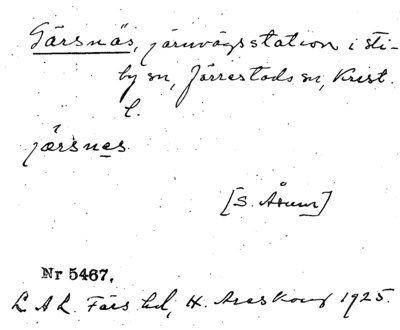 Gärsnäs, järnvägsstation i Sti-
by sn, Järrestads sn, Krist.
l.
jæsrnes
[S. Åum]
Nr 5467.
L A L. Färs hd, H. Areskoug 1925.